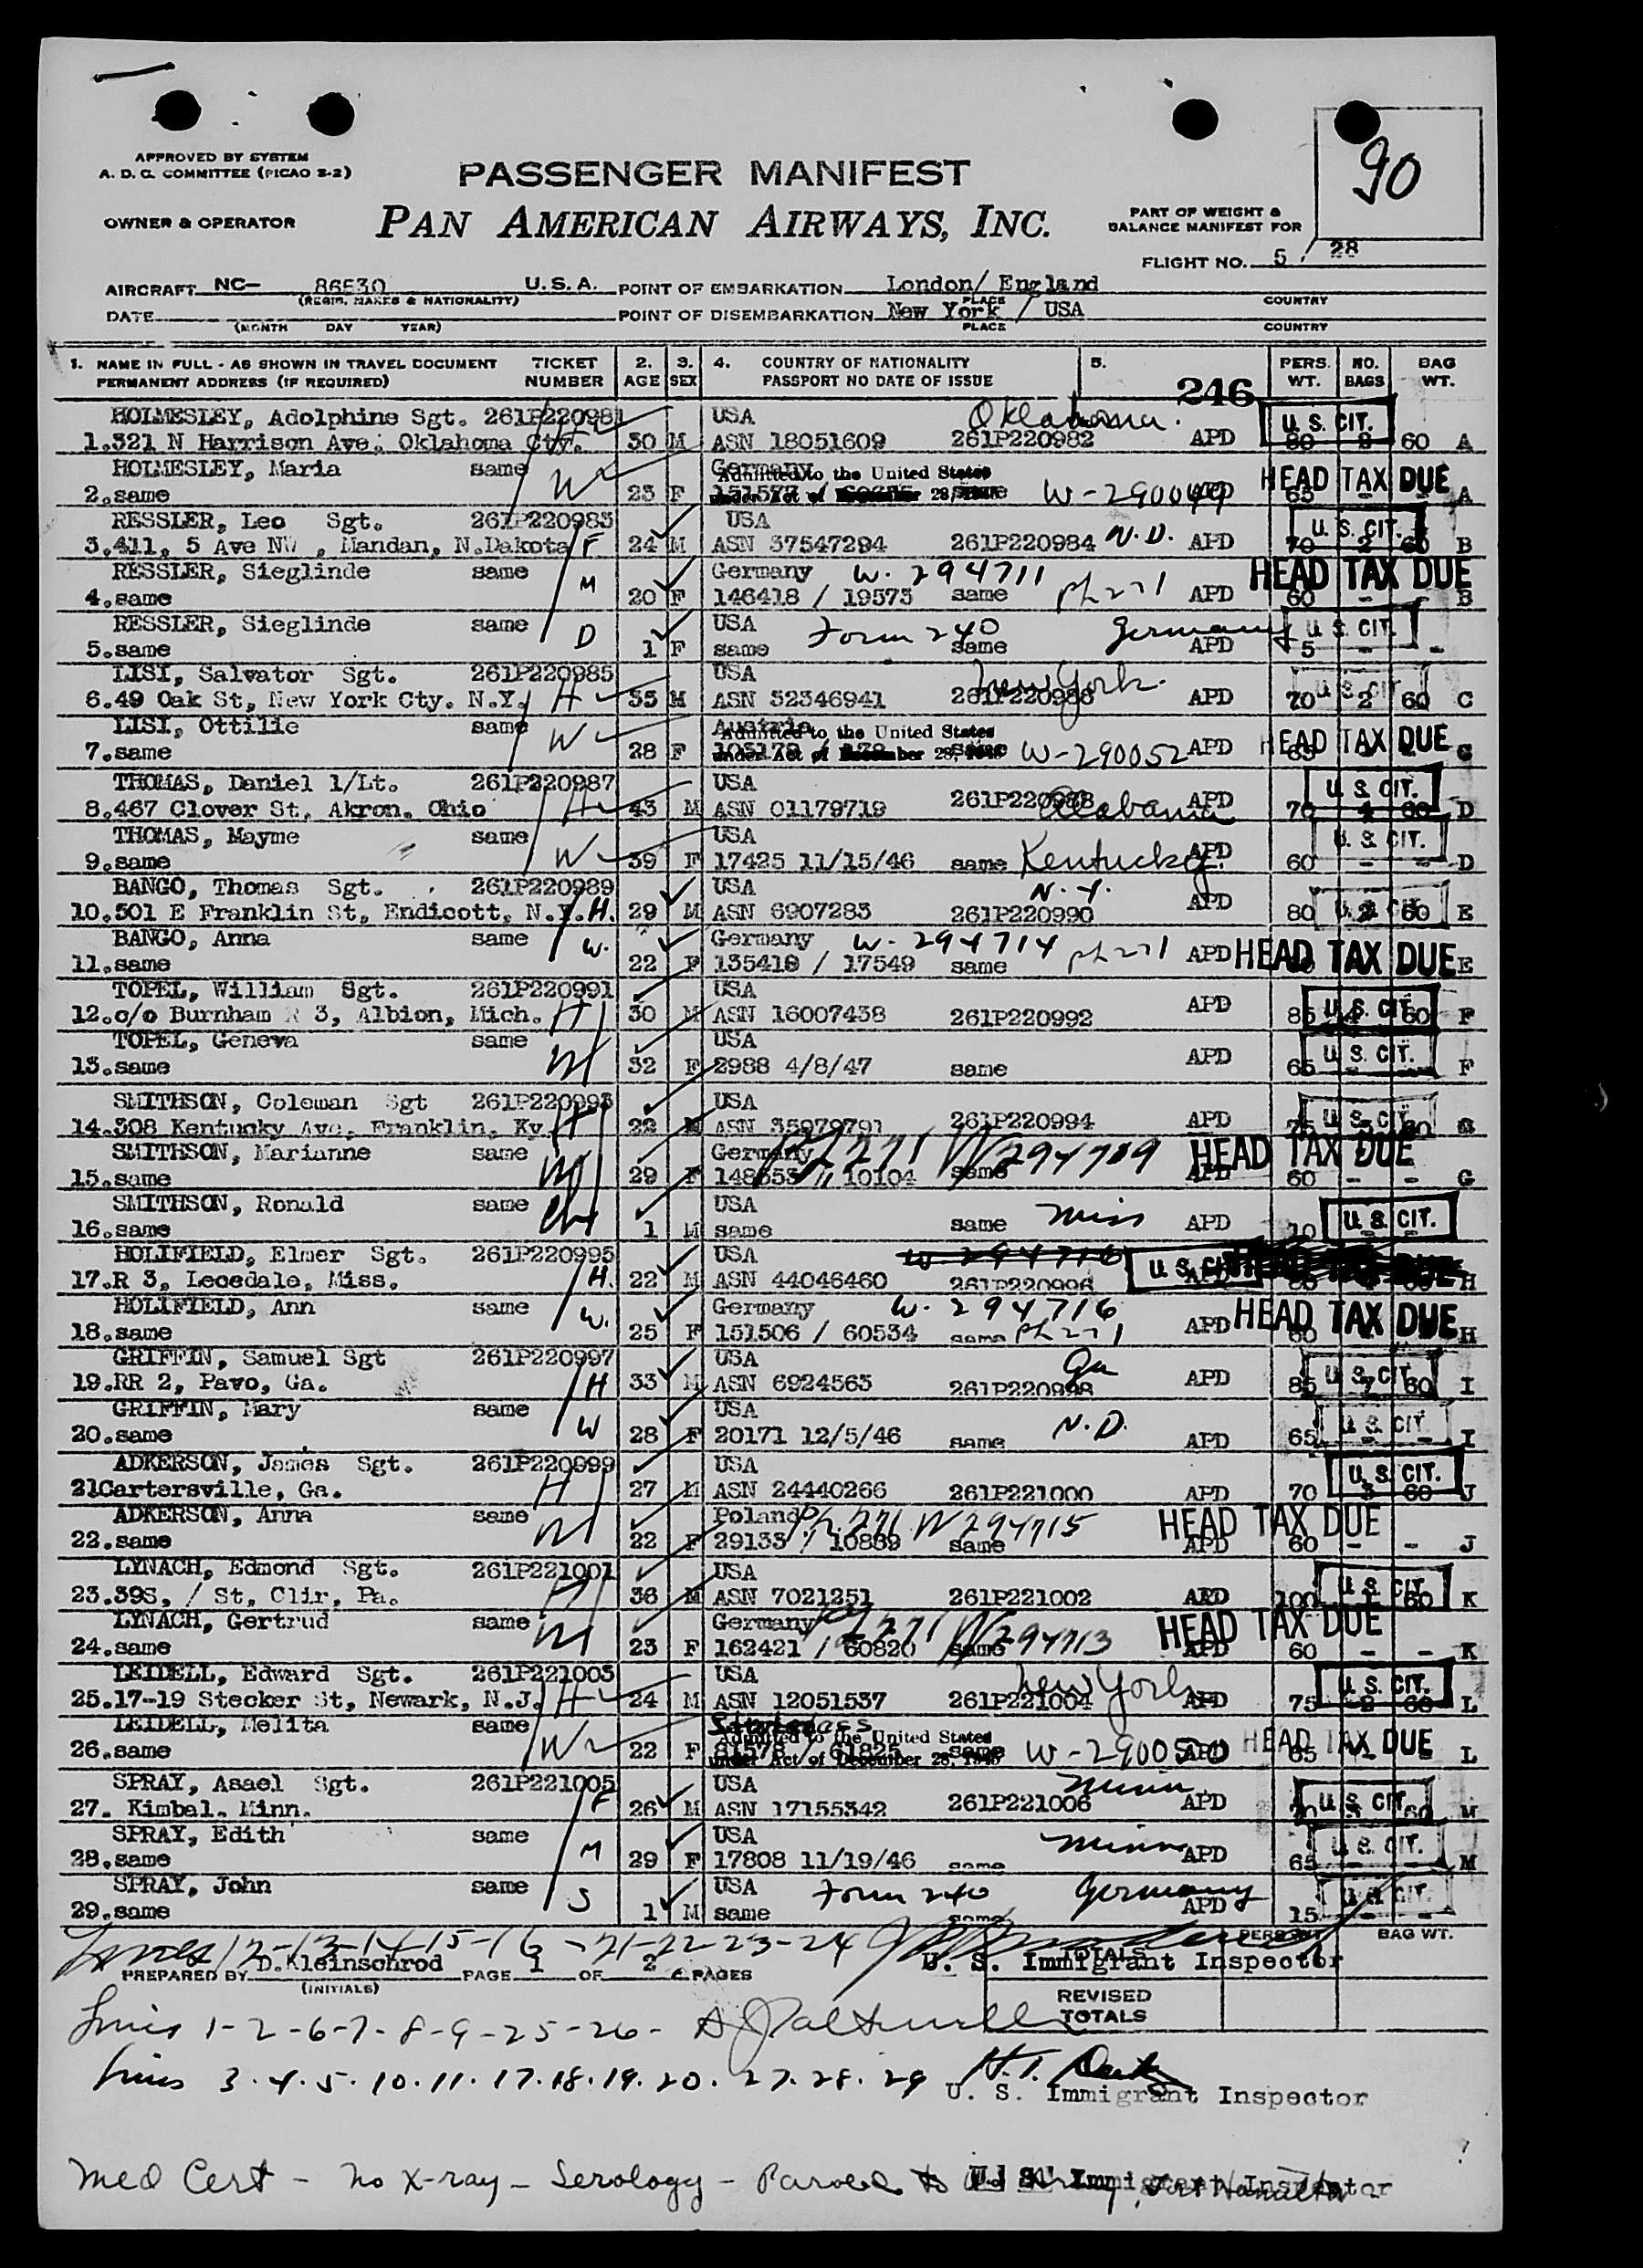 90
APPROVED BY SYSTEM
A. D. C. COMMITTEE (PICAO 2-2)
PASSENGER MANIFEST
OWNER & OPERATOR
PAN AMERICAN AIRWAYS, INC.
PART OF WEIGHT &
BALANCE MANIFEST FOR
FLIGHT NO. 5 / 28
AIRCRAFT NC- 86530 U.S.A. POINT OF EMBARKATION London/ England
(REGIS. MARKS & NATIONALITY) PLACE COUNTRY
DATE POINT OF DISEMBARKATION New York / USA
(MONTH DAY YEAR) PLACE COUNTRY
1. NAME IN FULL - AS SHOWN IN TRAVEL DOCUMENT TICKET 2. 3. 4. COUNTRY OF NATIONALITY 5. PERS. NO. BAG
PERMANENT ADDRESS (IF REQUIRED) NUMBER AGE SEX PASSPORT NO DATE OF ISSUE 246 WT. BAGS WT.
HOLMESLEY, Adolphine Sgt. 261P220981 USA Oklahoma. U. S. CIT.
1.321 N Harrison Ave, Oklahoma Cty. H 30 M ASN 18051609 261P220982 APD 60 A
HOLMESLEY, Maria same W Germany Admitted to the United States HEAD TAX DUE
2.same 23 F under Act of December 28, 1945 same W-290049 APD 65 - - A
RESSLER, Leo Sgt. 261P220983 USA U. S. CIT.
3.411, 5 Ave NW , Mandan, N.Dakota F 24 M ASN 37547294 261P220984 N.D. APD 70 2 60 B
RESSLER, Sieglinde same M Germany W. 294711 HEAD TAX DUE
4.same 20 F 146418 / 19573 same ph 271 APD 60 - - B
RESSLER, Sieglinde same D USA Form 240 Germany U. S. CIT.
5.same 1 F same same APD 5 - -
LISI, Salvator Sgt. 261P220985 USA New York. U. S. CIT.
6.49 Oak St, New York Cty. N.Y. H 35 M ASN 32346941 APD 70 2 60 C
LISI, Ottilie same W Austria Admitted to the United States HEAD TAX DUE
7.same 28 F under Act of December 28, 1945 same W-290052 APD 65 - - C
THOMAS, Daniel 1/Lt. 261P220987 USA U. S. CIT.
8.467 Clover St, Akron, Ohio H 43 M ASN 01179719 261P220988 Alabama APD 70 4 60 D
THOMAS, Mayme same W USA U. S. CIT.
9.same 39 F 17425 11/15/46 same Kentucky. APD 60 - - D
BANGO, Thomas Sgt. 261P220989 USA N.Y.
10.301 E Franklin St, Endicott, N.Y. H. 29 M ASN 6907283 261P220990 APD 80 2 60 E
BANGO, Anna same W. Germany W-294714 ph 271 APD HEAD TAX DUE
11.same 22 F 135418 / 17549 same E
TOPEL, William Sgt. 261P220991 USA APD U. S. CIT.
12.c/o Burnham R 3, Albion, Mich. H 30 M ASN 16007438 261P220992 85 60 F
TOPEL, Geneva same USA APD U. S. CIT.
13.same 32 F 2988 4/8/47 same 65 F
SMITHSON, Coleman Sgt 261P220993 USA U. S. CIT.
14.308 Kentucky Ave, Franklin, Ky. H 22 M ASN 35979791 261P220994 APD 75 60 G
SMITHSON, Marianne same Germany W294709 HEAD TAX DUE
15.same 29 F 148653 / 10104 same APD 60 - - G
SMITHSON, Ronald same USA
16.same 1 M same same Miss APD 10 U. S. CIT.
HOLIFIELD, Elmer Sgt. 261P220995 USA W 294716 U. S. CIT
17.R 3, Lecedale, Miss. H. 22 M ASN 44046460 261P220996 H
HOLIFIELD, Ann same W. Germany W. 294716
18.same 25 F 151506 / 60534 same ph 271 APD HEAD TAX DUE H
GRIFFIN, Samuel Sgt 261P220997 USA Ga U. S. CIT
19.RR 2, Pavo, Ga. H 33 M ASN 6924563 261P220998 APD 85 7 60 I
GRIFFIN, Mary same W USA N.D. U. S. CIT.
20.same 28 F 20171 12/5/46 same APD 65 - - I
ADKERSON, James Sgt. 261P220999 USA U. S. CIT.
21Cartersville, Ga. H 27 M ASN 24440266 261P221000 APD 70 3 60 J
ADKERSON, Anna same Poland Ph. 271 W294715 HEAD TAX DUE
22.same 22 F 29133 / 10889 same APD 60 - - J
LYNACH, Edmond Sgt. 261P221001 USA U. S. CIT.
23.39S, / St, Clir, Pa. H 36 M ASN 7021251 261P221002 APD 100 60 K
LYNACH, Gertrud same Germany 271 W294713 HEAD TAX DUE
24.same 23 F 162421 / 60820 same APD 60 - - K
LEIDELL, Edward Sgt. 261P221003 USA New York U. S. CIT.
25.17-19 Stecker St, Newark, N.J. H 24 M ASN 12051537 261P221004 APD 75 2 60 L
LEIDELL, Melita same W Admitted to the United States HEAD TAX DUE
26.same 22 F 81578 / 61825 under Act of December 28, 1945 same W-290050 APD 65 L
SPRAY, Asael Sgt. 261P221005 USA Minn. U. S. CIT.
27. Kimbal. Minn. F 26 M ASN 17155342 261P221006 APD 60 M
SPRAY, Edith same M USA Minn U. S. CIT.
28.same 29 F 17808 11/19/46 same APD 65 - - M
SPRAY, John same S USA Form 240 Germany U. S. CIT.
29.same 1 M same same APD 15
Lines 12-13-14-15-16-21-22-23-24 PERS WT. BAG WT.
PREPARED BY D.Kleinschrod PAGE 1 OF 2 PAGES U. S. Immigrant Inspector TOTALS
(INITIALS)
REVISED
TOTALS
Lines 1-2-6-7-8-9-25-26-
Lines 3.4.5.10.11.17.18.19.20.27.28.29 H.T.
U. S. Immigrant Inspector
Med Cert - no X-ray - Serology - Paroled to U. S. Immigrant Inspector